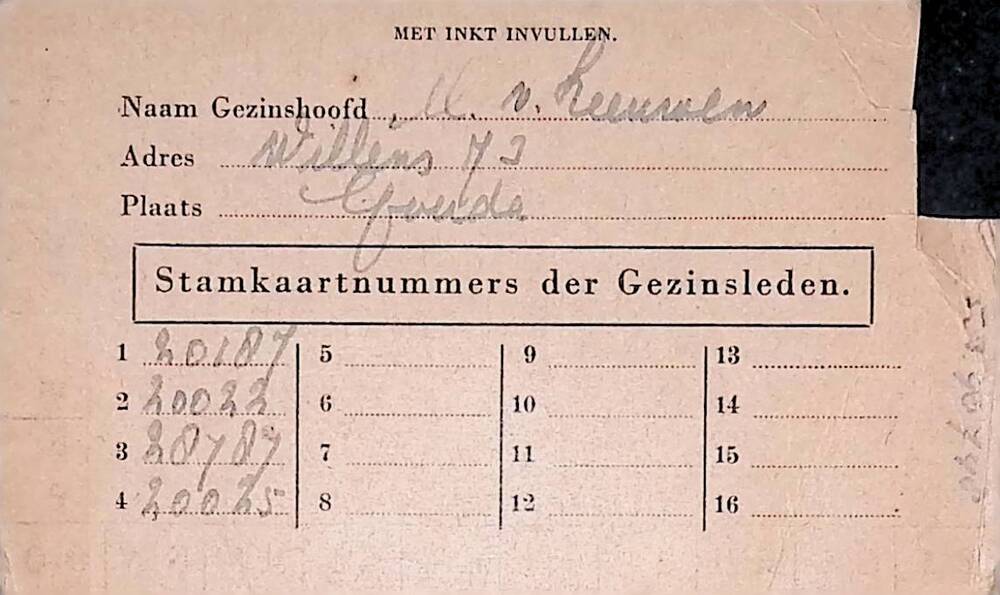 MET INKT INVULLEN.
Naam Gezinshoofd v. Leeuwen
Adres Willens 73
Plaats Gouda
Stamkaartnummers der Gezinsleden.
1 20187 5 9 13
2 20022 6 10 14
3 28787 7 11 15
4 20025 8 12 16